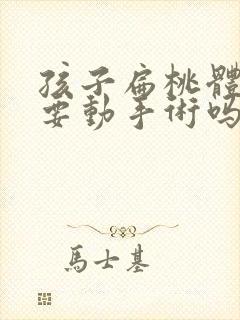 孩子扁桃體
要動手術嗎
馬士基